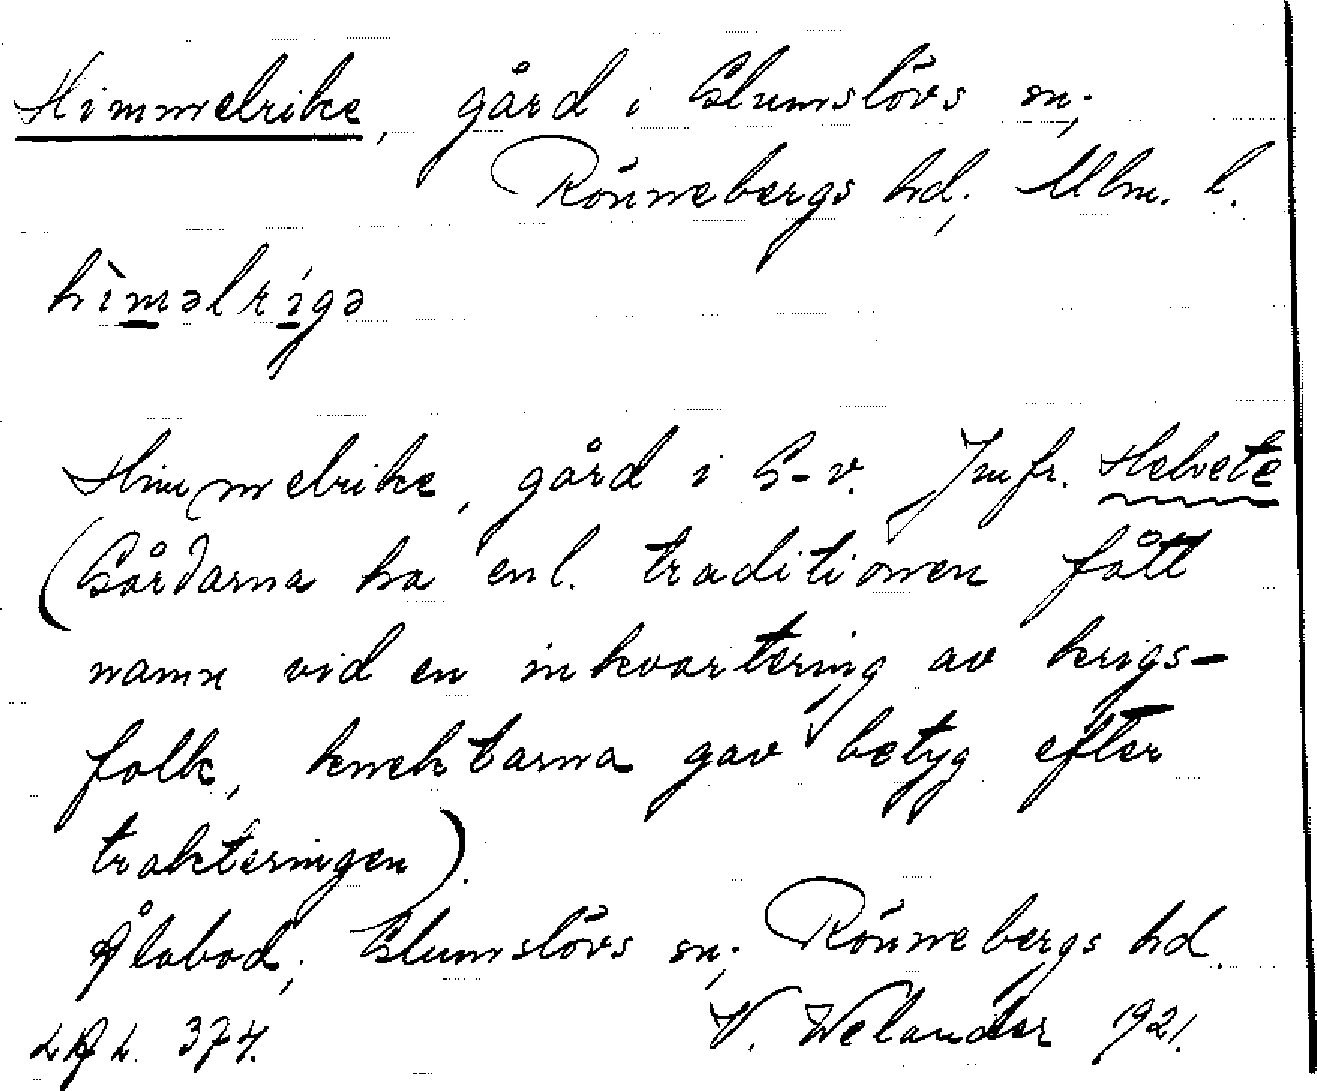 Himmelrike, gård i Glumslövs sn;
Rönnebergs hd; Mlm. l.
hìməlrígə
Himmelrike, gård i G-v. Jmfr. Helvete
(Gårdarna ha enl. traditionen fått
namn vid en inkvartering av krigs-
folk, knektarna gav betyg efter
trakteringen).
Ålabod; Glumslövs sn; Rönnebergs hd.
LAL. 374. W. Welander 1921.